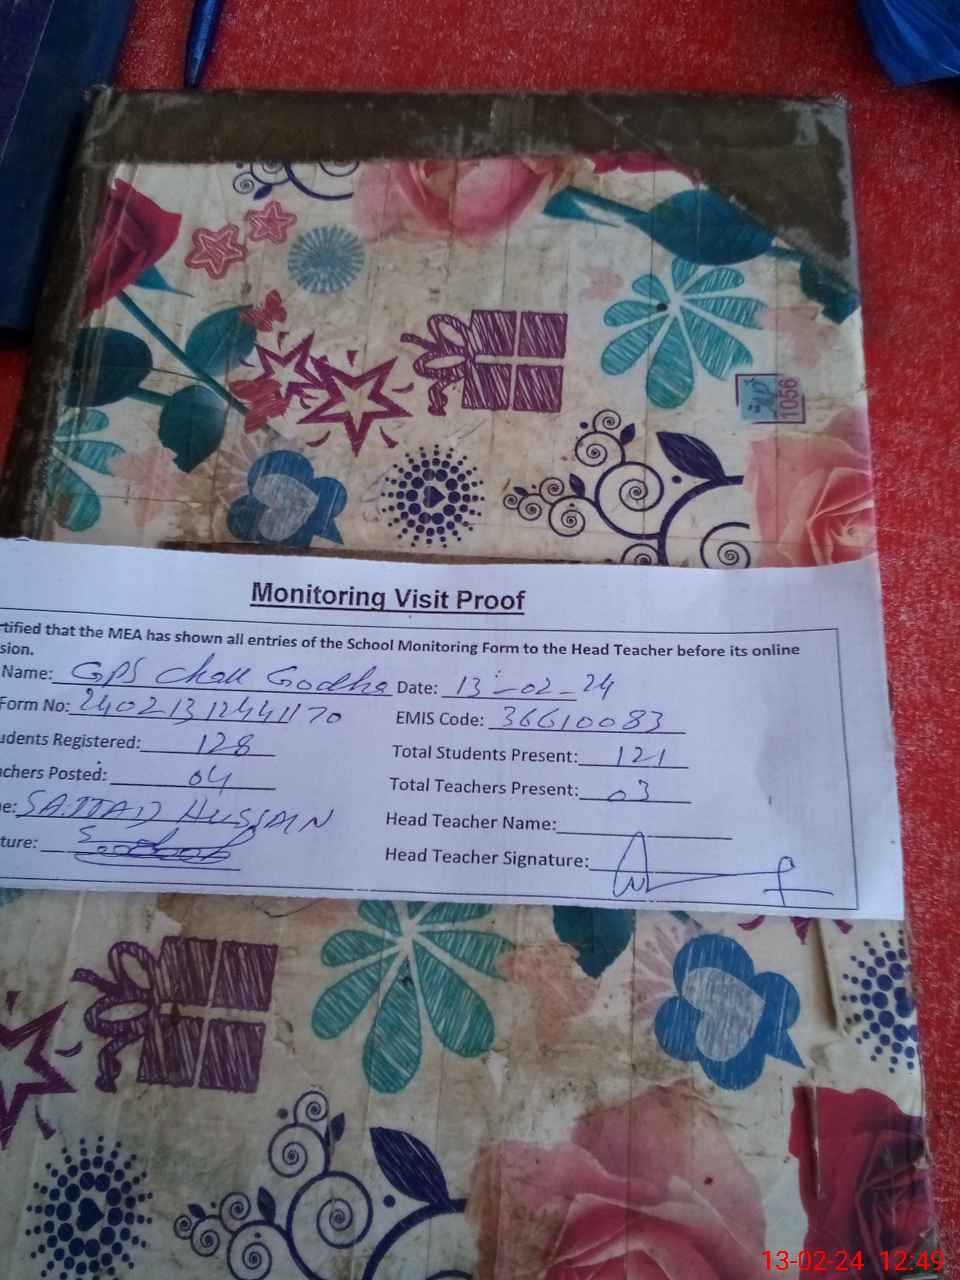 1056
Monitoring Visit Proof
rtified that the MEA has shown all entries of the School Monitoring Form to the Head Teacher before its online
sion.
Name: GPS Chak Godha Date: 13-02-24
Form No: 24021312441170 EMIS Code: 36610083
udents Registered: 128 Total Students Present: 121
achers Posted: 04 Total Teachers Present: 03
e: SAJJAD HUSSAIN Head Teacher Name:
ture: Head Teacher Signature:
13-02-24 12:49